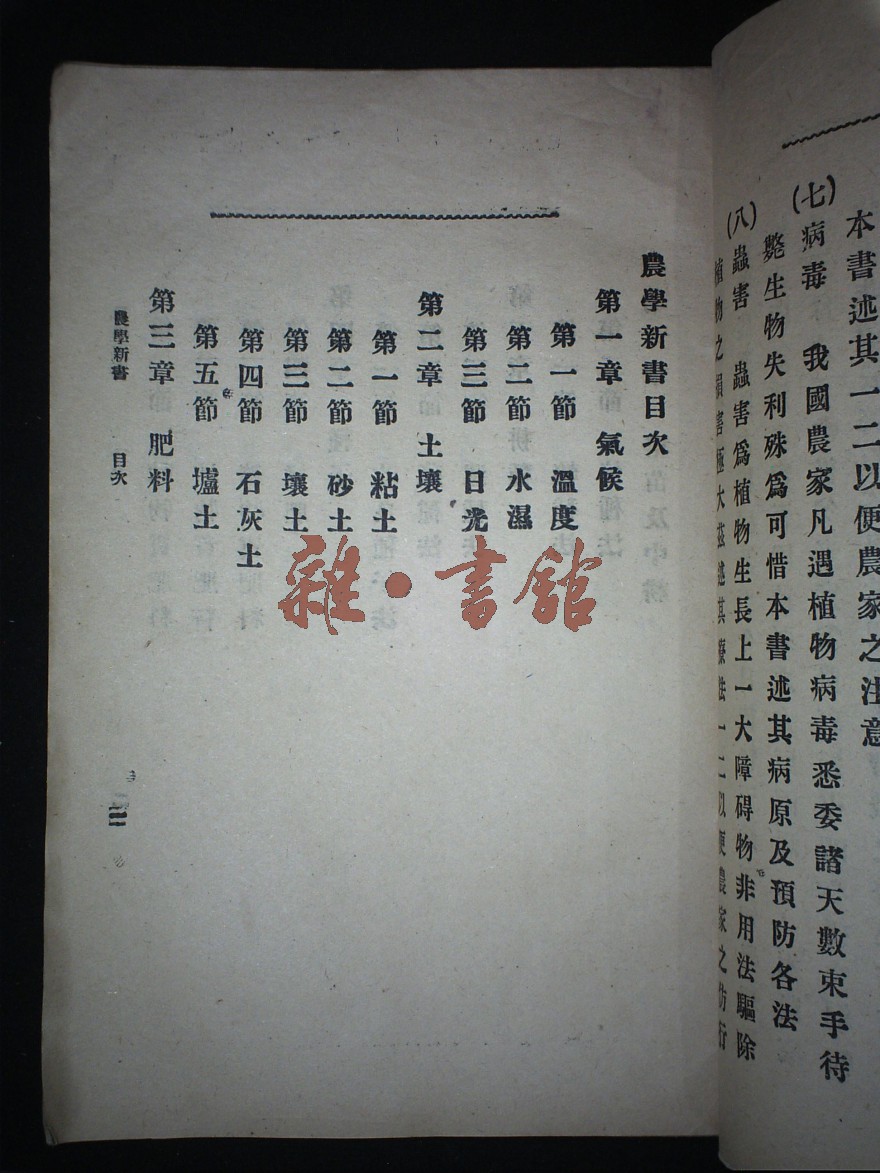 本書述其一二以便農家之注意
(七)病毒 我國農家凡遇植物病毒悉委諸天數束手待
斃生物失利殊爲可惜本書述其病原及預防各法
(八)蟲害 蟲害爲植物生長上一大障碍物非用法驅除
植物之損害極大茲述其療法一二以便農家之防
農學新書目次
第一章 氣候
第一節 溫度
第二節 水濕
第三節 日光
第二章 土壤
第一節 粘土
第二節 砂土
第三節 壤土
第四節 石灰土
第五節 壚土
第三章 肥料
農學新書 目次
雜·書館